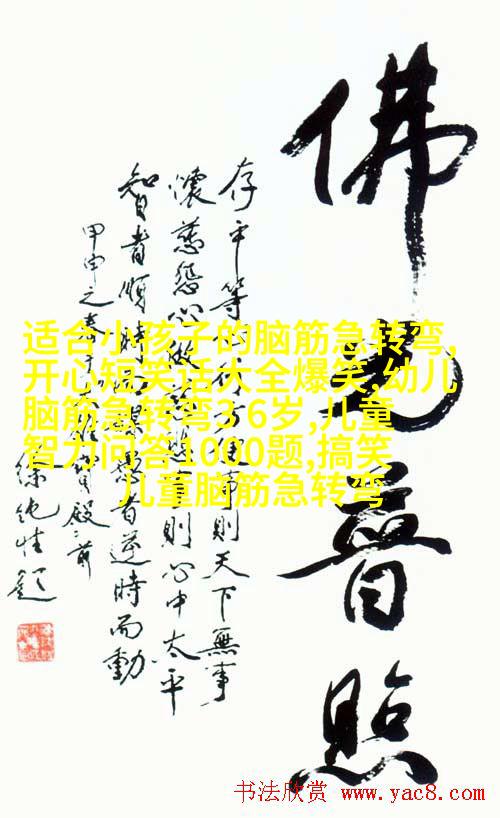 佛光普照
存平等心行方便事則天下無事
懷慈悲心做則心中太平
智者順時而謀愚者逆時而動
甲申之春於大雄寶殿之前
适合小孩子的脑筋急转弯,
开心短笑话大全爆笑,幼儿
脑筋急转弯3 6岁,儿童
智力问答1000题,搞笑
儿童脑筋急转弯
书法欣赏 www.yac8.com